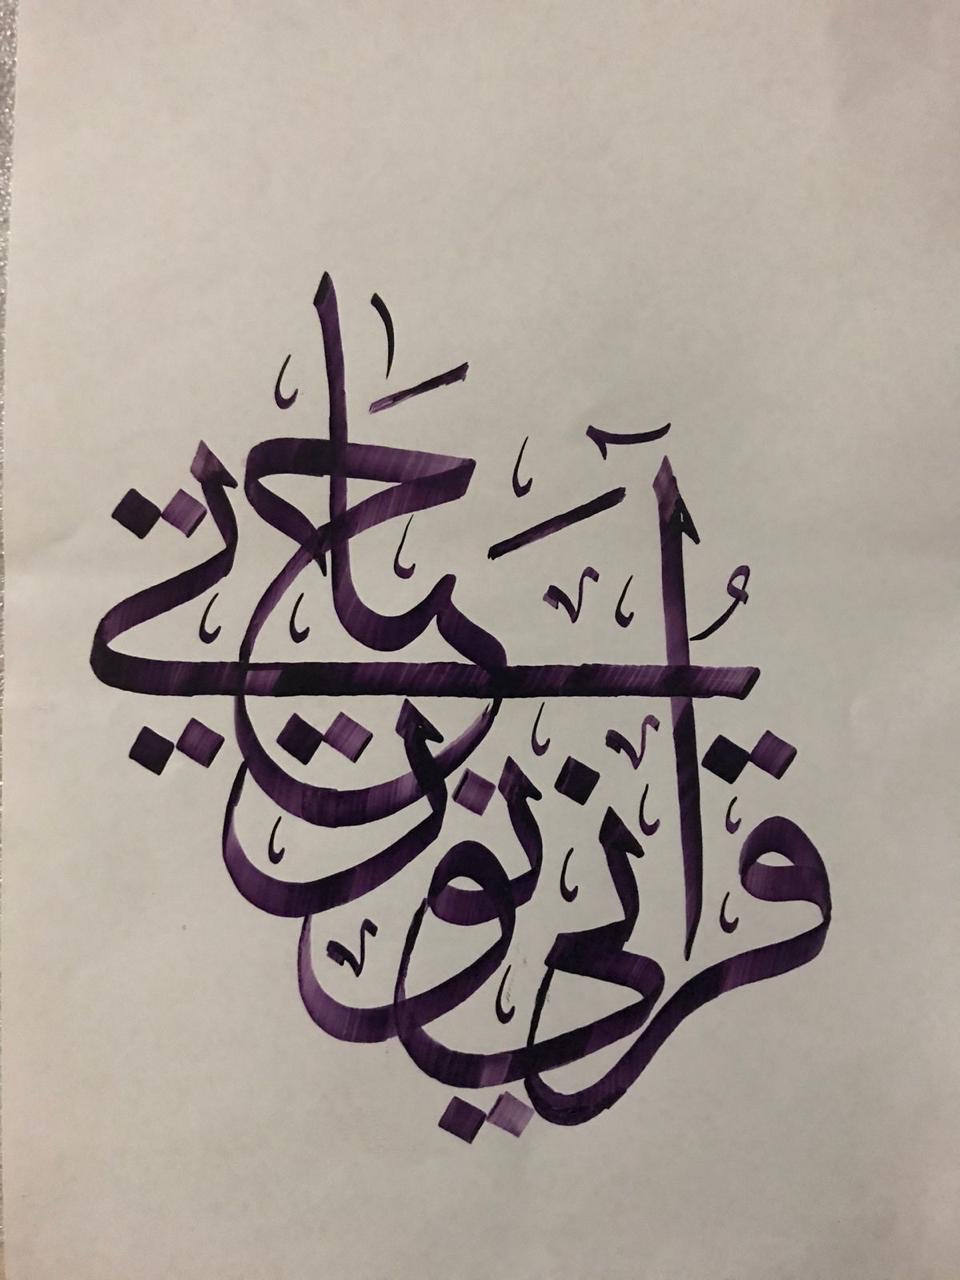 قرآني نور حياتي